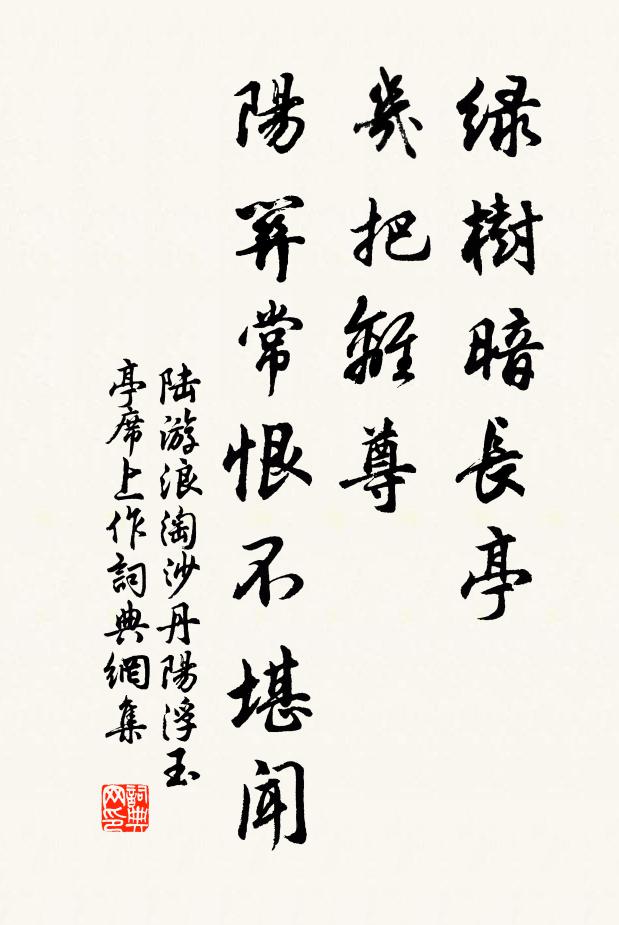 綠樹暗長亭
幾把離尊
陽關常恨不堪聞
陸游浪淘沙丹陽浮玉
亭席上作詞典網集
詞典
网印